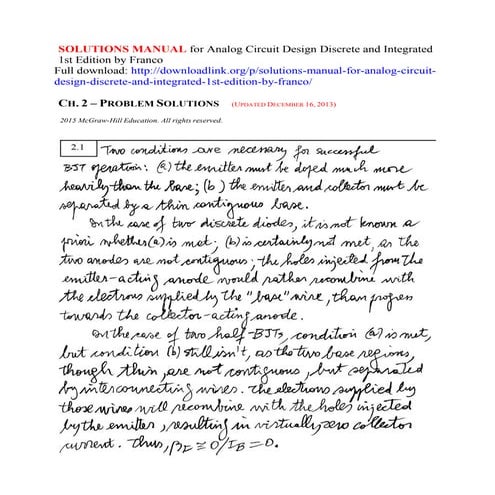 SOLUTIONS MANUAL for Analog Circuit Design Discrete and Integrated
1st Edition by Franco
Full download: http://downloadlink.org/p/solutions-manual-for-analog-circuit-
design-discrete-and-integrated-1st-edition-by-franco/
CH. 2 – PROBLEM SOLUTIONS (UPDATED DECEMBER 16, 2013)
2015 McGraw-Hill Education. All rights reserved.
2.1 Two conditions are necessary for successful
BJT operation: (a) the emitter must be doped much more
heavily than the base; (b) the emitter and collector must be
separated by a thin contiguous base.
In the case of two discrete diodes, it is not known a
priori whether (a) is met; (b) is certainly not met, as the
two anodes are not contiguous; the holes injected from the
emitter-acting anode would rather recombine with
the electrons supplied by the "base" wire, than progress
towards the collector-acting anode.
In the case of two half-BJTs, condition (a) is met,
but condition (b) still isn't, as the two base regions,
though thin, are not contiguous, but separated
by interconnecting wires. The electrons supplied by
those wires will recombine with the holes injected
by the emitter, resulting in virtually zero collector
current. Thus, βF ≅ 0/IB = 0.